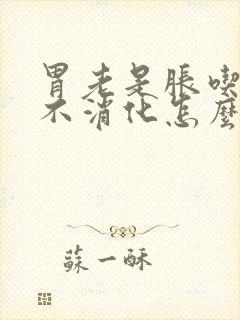 胃老是脹喫
不消化怎麼
蘇一酥